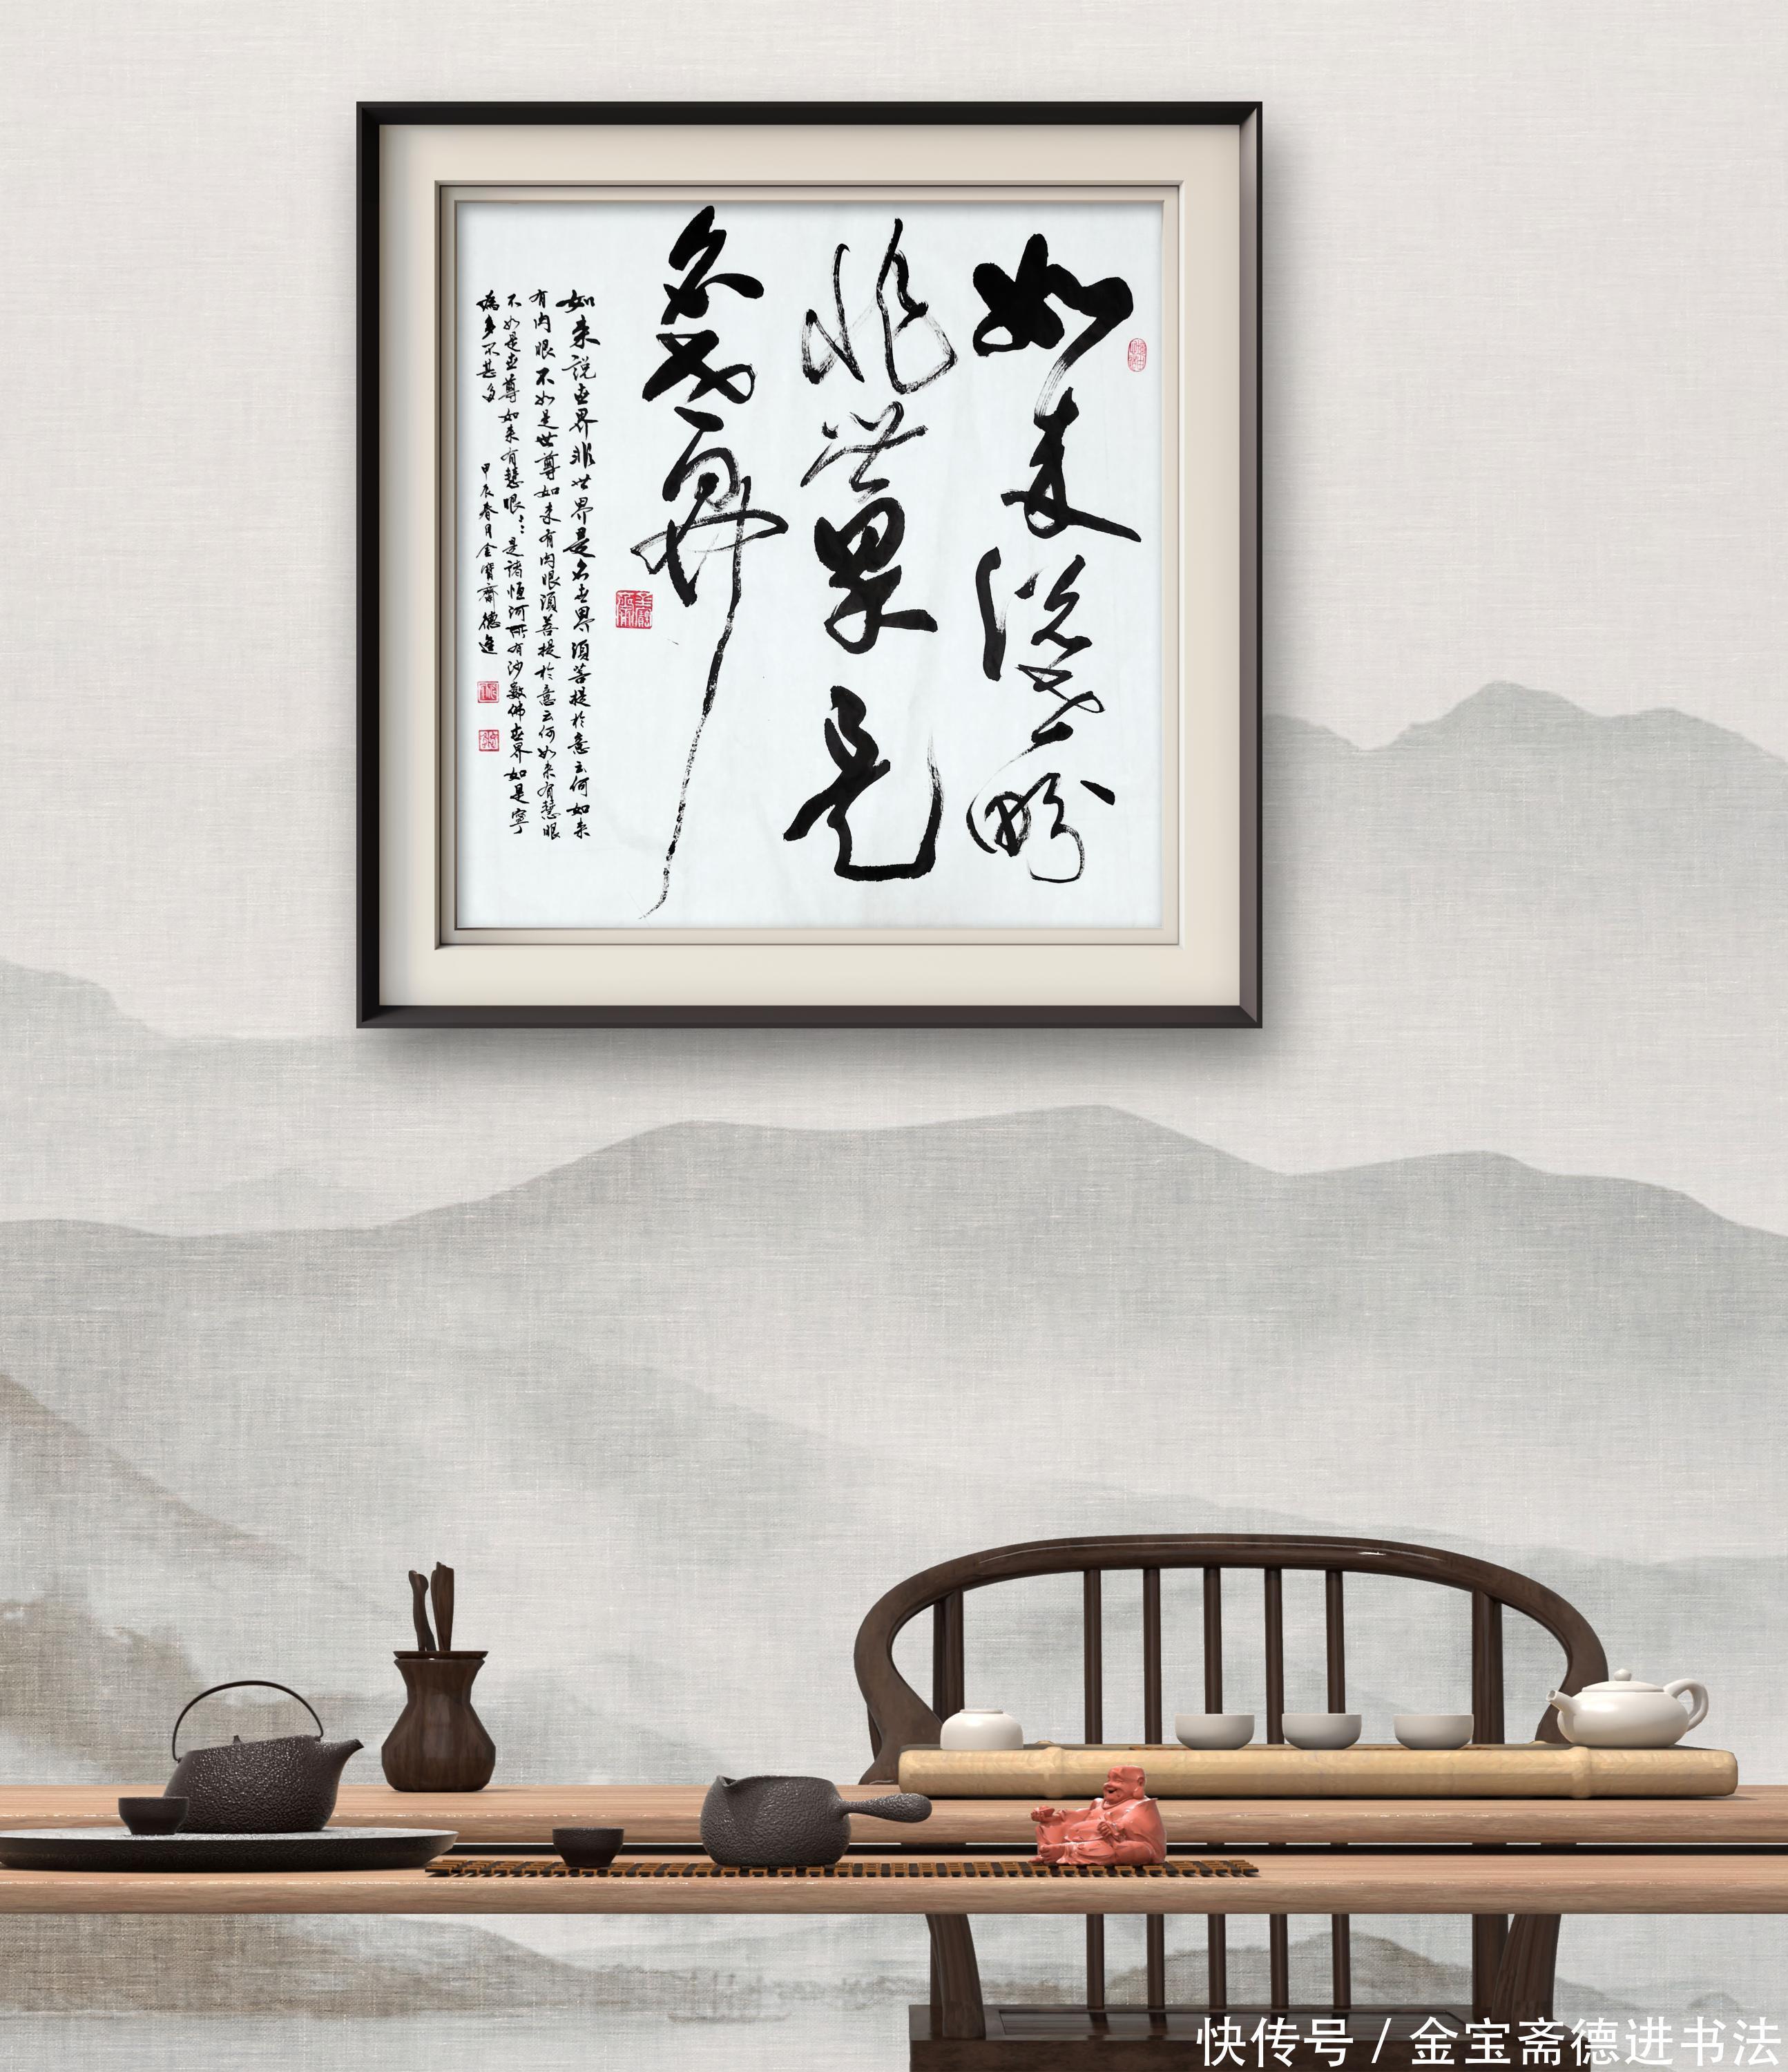 如来说世界
非世界是
名世界
如来説世界非世界是名世界須菩提於意云何如来
有肉眼不如是世尊如来有肉眼須菩提於意云何如来有慧眼
不如是世尊如来有慧眼
是諸恒河所有沙数佛世界如是寧
為多不甚多
甲辰春月金寶齋德進
快传号 / 金宝斋德进书法